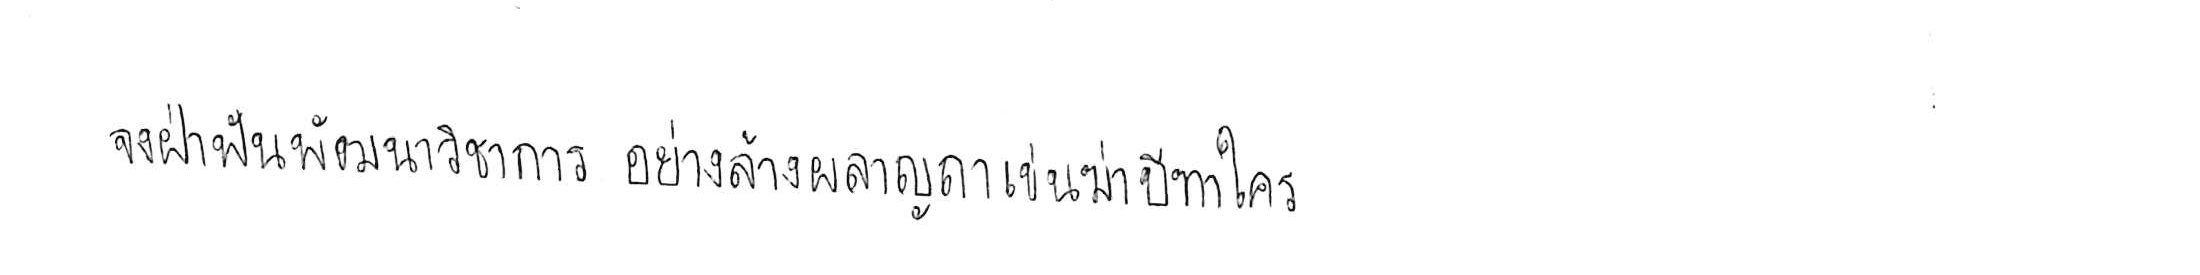 จงฝ่าฟันพัฒนาวิชาการ อย่างล้างผลาญฤๅเข่นฆ่าบีฑาใคร